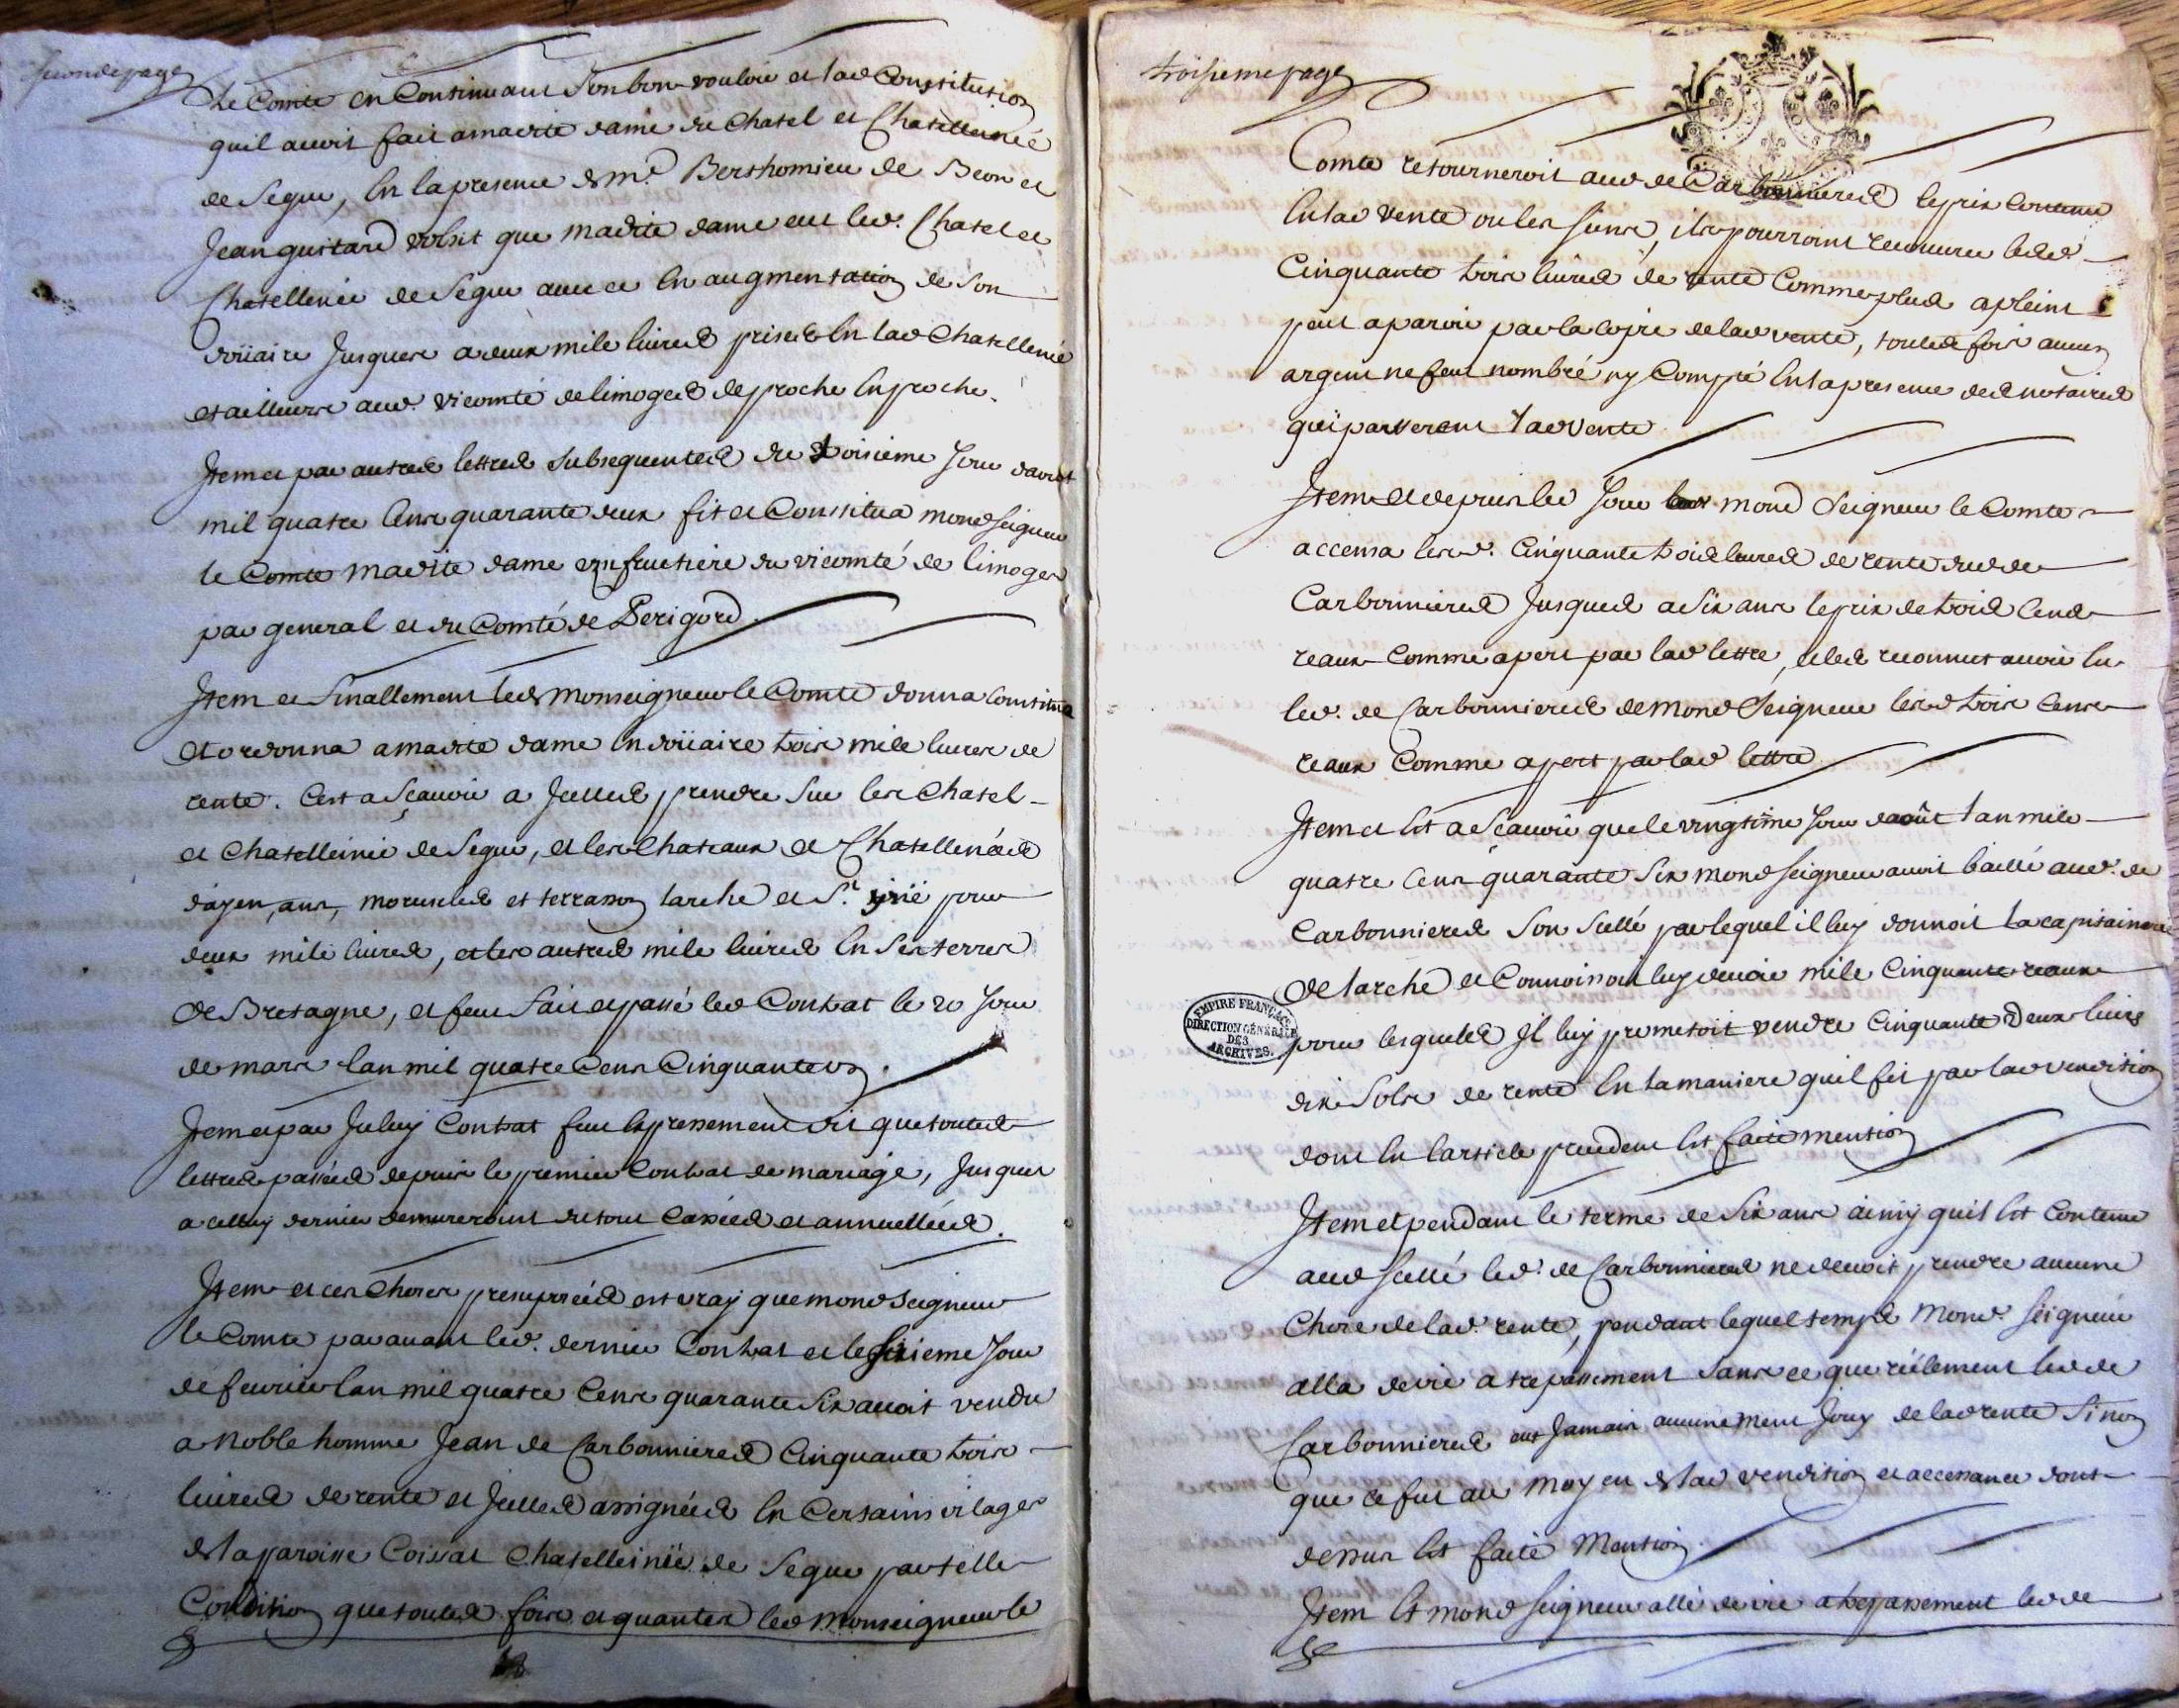 seconde page
Le Comte en Continuant son bon vouloir et lad Constitution
quil avoit fait a madite dame du Chatel et Chatellenié
de Segur, En la presence de me. Berthomieu de Beon et
Jean guitard volsit que madite dame eut led. Chatel et
Chatellenie de Segur avec ce En augmentation de son
doüaire Jusques a deux mile livres prises En lad Chatellenie
et ailleurs aud. vicomté de limoges de proche En proche.
Item et par autres lettres subsequentes du troisieme Jour davril
mil quatre Cens quarante deux fit et Constitua mond seigneur
le Comte madite dame uzufructiere du vicomté de limoges
par general et du Comté de Perigord.
Item et finallement led monseigneur le Comte donna Constitua
et ordonna a madite dame En doüaire trois mile livres de
rente. C'est a sçavoir a Jcelles prendre sur les Chatel
et Chatelleinie de Segur, et les Chateaux et Chatellenies
d'ayen, ans, et terrasson larche et St. yrié pour
deux mile livres, et les autres mile livres En ses terres
de Bretagne, et feut fait et passé led Contrat le 20 Jour
de mars lan mil quatre Cens Cinquante un.
Item et par Jceluy Contrat feut Expressement dit que toutes
lettres passées depuis le premier Contrat de mariage, Jusques
a celluy dernier demureroint du tout Cassées et annullées.
Item et ces Choses presuposées est vray que mond seigneur
le Comte par avant led. dernier Contrat et le sixieme Jour
de fevrier lan mil quatre Cens quarante six avoit vendu
a Noble homme Jean de Carbonnieres Cinquante trois
livres de rente et Jcelles assignées En Certains vilages
de la paroisse Coissat Chatelleinie de Segur par telle
Condition que toutes fois et quantes led monseigneur le
troisieme page
Comte retourneroit aud de Carbonnieres le prix Contenu
En lad vente ou les siens, ils pourroint recouvrer lesd
Cinquante trois livres de rente Comme plus a pleint
peut aparoir par la Copie de lad vente, toutes fois aucun
argent ne feut nombré ny Compté En la presence des notaires
qui passerent lad vente
Item et depuis led Jour mond Seigneur le Comte
accensa lesd. Cinquante trois livres de rente dud de
Carbonnieres Jusques a six ans le prix de trois Cens
reaux Comme apert par lad lettre, et les reconnut avoir Eu
led. de Carbonnieres de mond Seigneur lesd trois Cens
reaux Comme apert par lad lettre
Item et Est a Sçavoir que le vingtieme Jour daoût lan mile
quatre Cens quarante six mond seigneur avoit baillé aud. de
Carbonnieres son scellé par lequel il luy donnoit la capitainerie
de larche et Connoissoit luy devoir mile Cinquante reaux
pour lesqueles Il luy prometoit vendre Cinquante deux livres
dix Sols de rente En la maniere quil fit par lad vendition
dont En larticle precedent Est faite mention
Item et pendant le terme de six ans ainsy quil Est Contenu
aud scellé led. de Carbonnieres ne devoit prendre aucune
Chose de lad. rente, pendant lequel temps Mond. seigneur
alla de vie a trepassement sans ce que réélement led de
Carbonnieres eut Jamais aucunement Jouy de lad rente Sinon
que ce fut au moyen de lad vendition et accensance dont
dessus Est faite Mention.
Item Et mond seigneur allé de vie a trepassement led de
EMPIRE FRANÇAIS
DIRECTION GÉNÉRALE
DES
ARCHIVES.